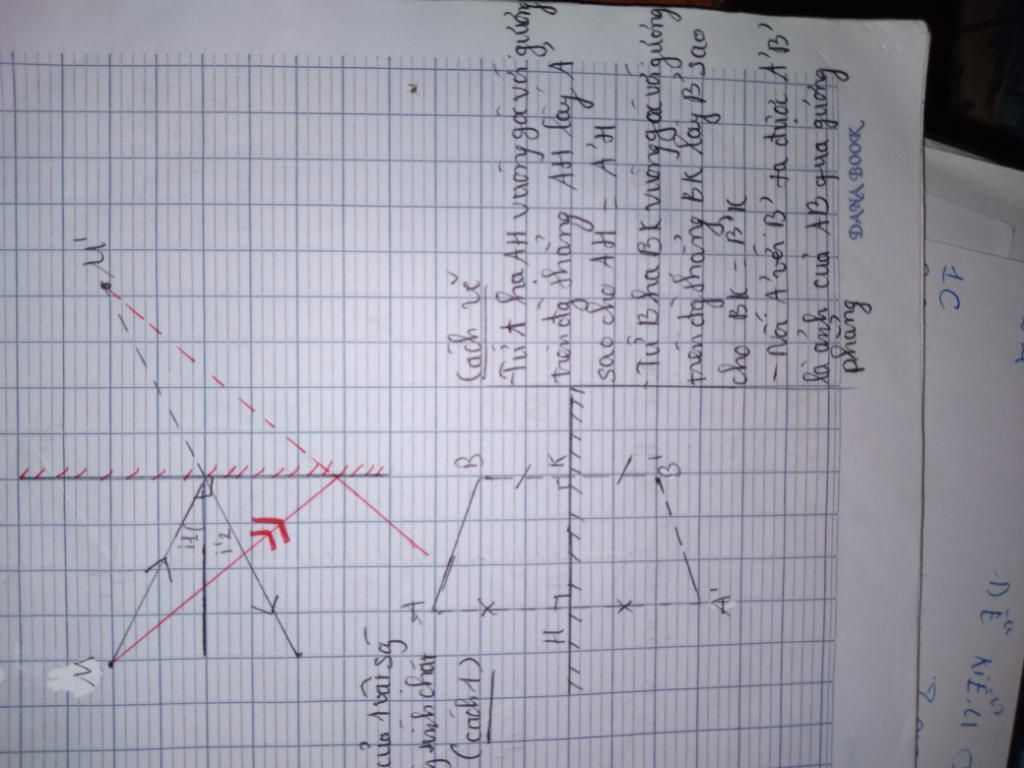 M
M'
i1
i2
của 1 vài số
tính chất
(cách 1)
A
B
H
K
A'
B'
Cách vẽ
-Từ A hạ AH vuông góc với gương
trên đg thẳng AH lấy A'
sao cho AH = A'H
-Từ B hạ BK vuông góc với gương
trên đg thẳng BK lấy B' sao
cho BK = B'K
- Nối A' với B' ta được A'B'
là ảnh của AB qua gương
phẳng
DARABOOK
1C